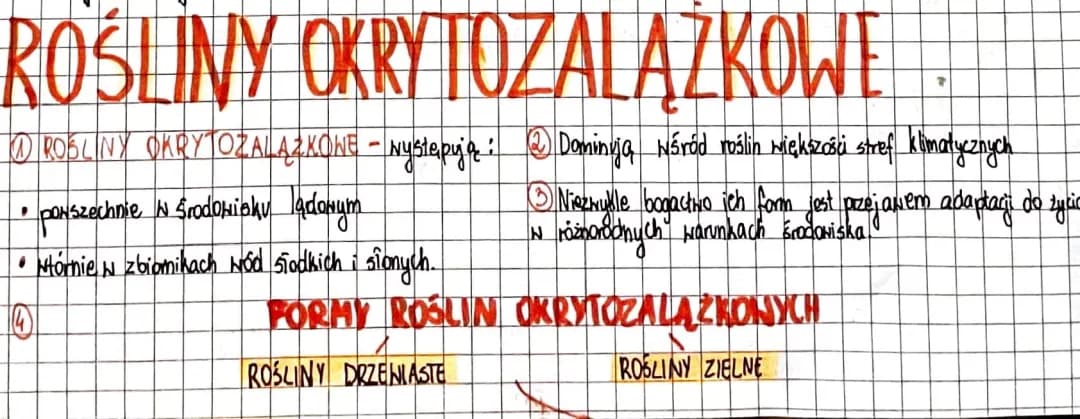 ROŚLINY OKRYTOZALĄŻKOWE
① ROŚLINY OKRYTOZALĄŻKOWE - występują:
• powszechnie w środowisku lądowym
• wtórnie w zbiornikach wód słodkich i słonych.
② Dominują wśród roślin większości stref klimatycznych
③ Niezwykle bogactwo ich form jest przejawem adaptacji do życia
w różnorodnych warunkach środowiska.
④ FORMY ROŚLIN OKRYTOZALĄŻKOWYCH
ROŚLINY DRZEWIASTE ROŚLINY ZIELNE